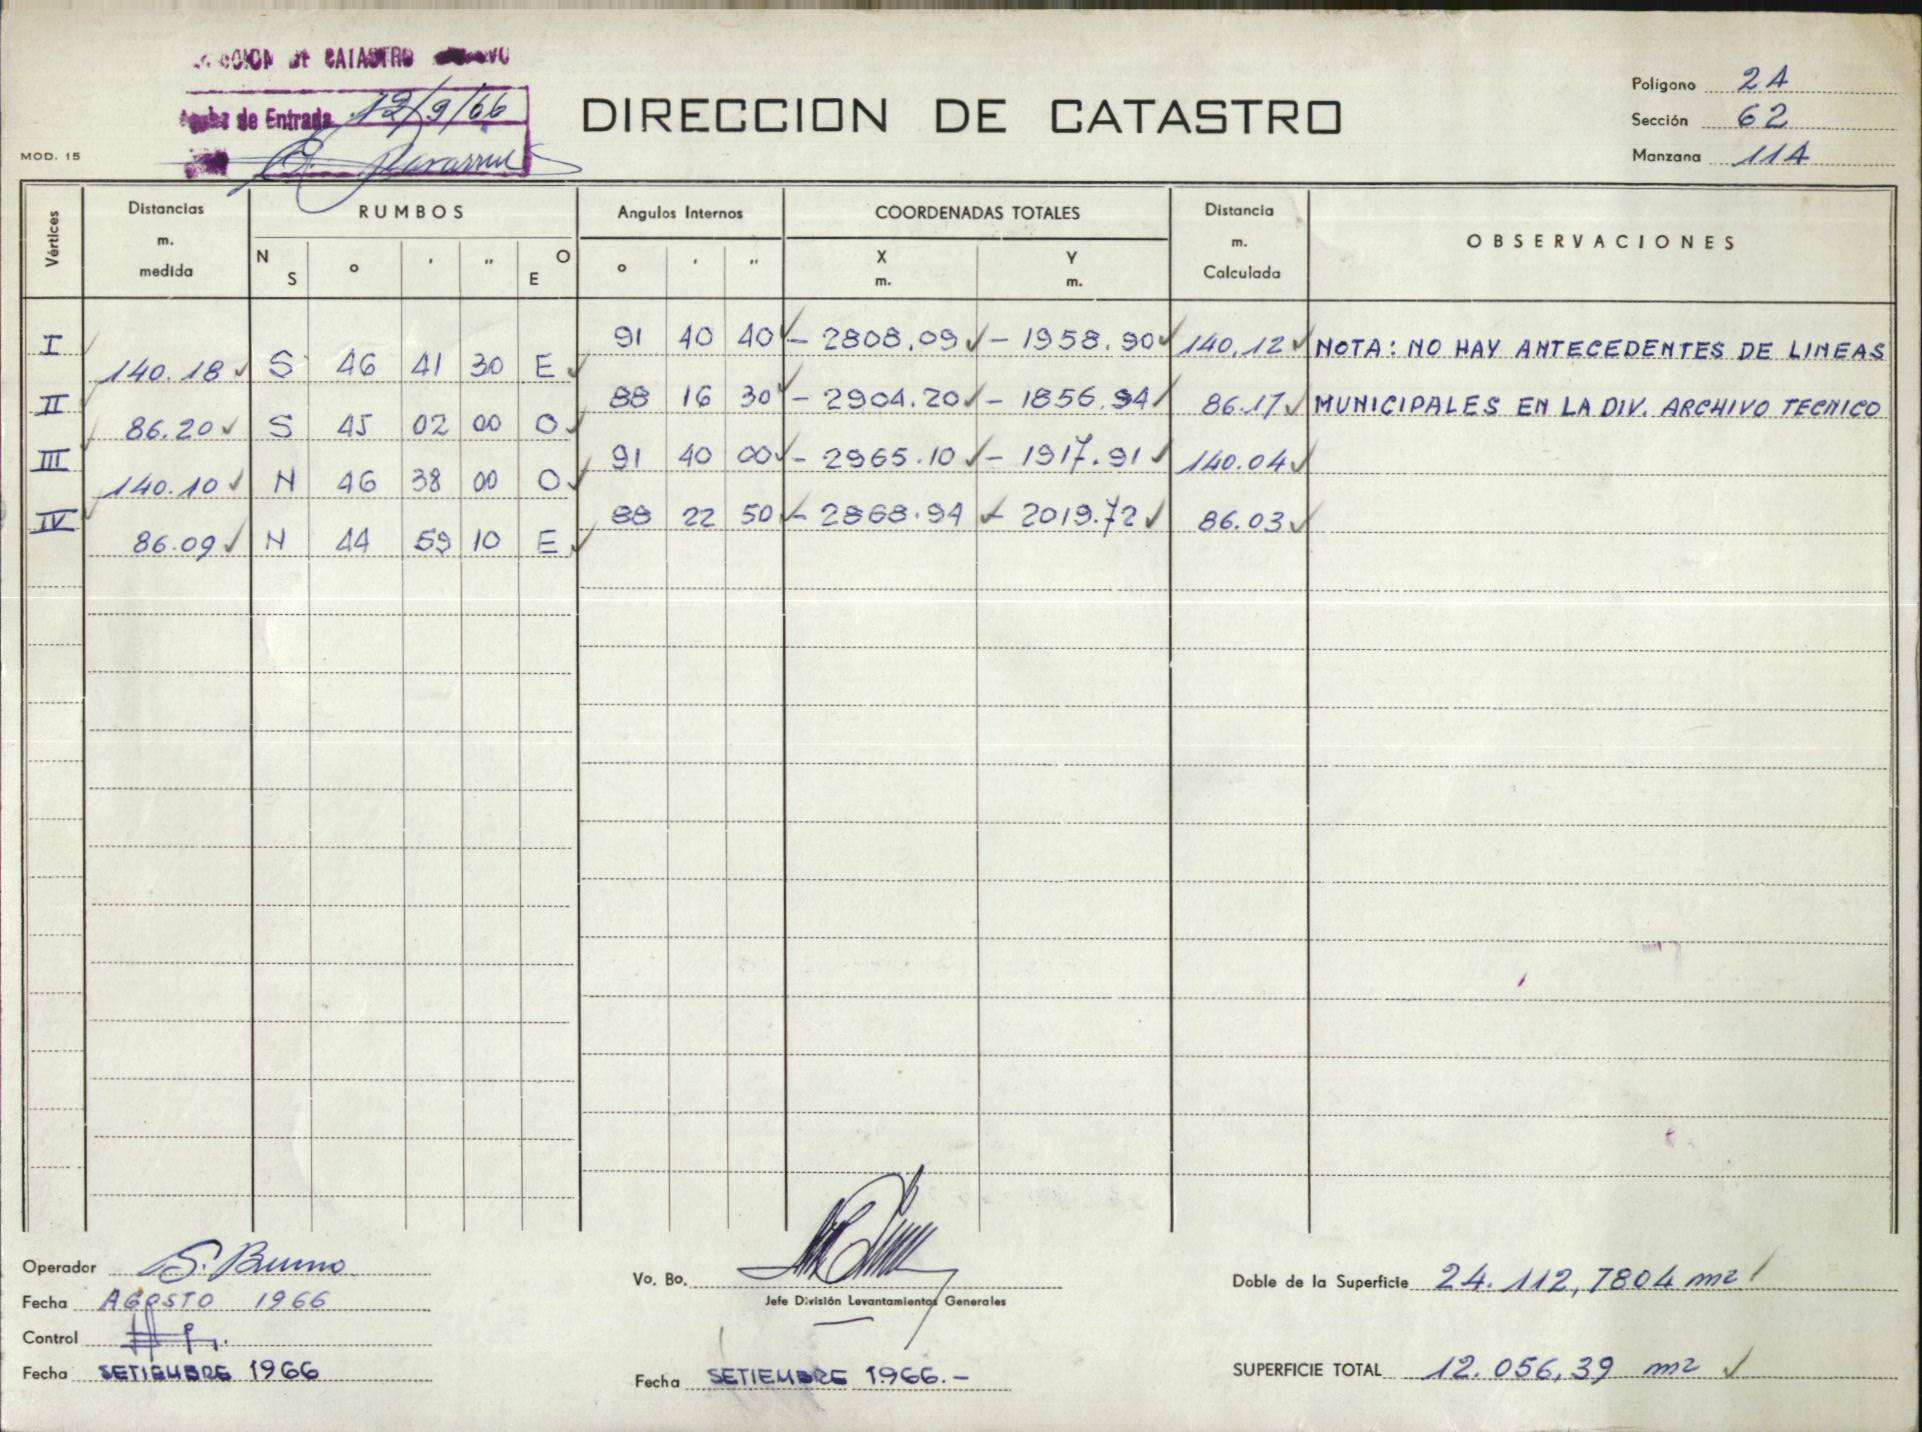 DE CATASTRO
de Entrada 12/9/66
DIRECCION DE CATASTRO
Polígono 2A
Sección 62
Manzana 11A
MOD. 15
Vértices
Distancias m. medida
RUMBOS
N S ° ' " O E
Angulos Internos
° ' "
COORDENADAS TOTALES
X m. Y m.
Distancia m. Calculada
OBSERVACIONES
I 91 40 40 - 2808.09 - 1958.90 140.12 NOTA: NO HAY ANTECEDENTES DE LINEAS
140.18 S 46 41 30 E
II 88 16 30 - 2904.20 - 1856.94 86.17 MUNICIPALES EN LA DIV. ARCHIVO TECNICO
86.20 S 45 02 00 O
III 91 40 00 - 2965.10 - 1917.91 140.04
140.10 N 46 38 00 O
IV 88 22 50 - 2868.94 - 2019.72 86.03
86.09 N 44 59 10 E
Operador S. Bruno
Fecha AGOSTO 1966
Control
Fecha SETIEMBRE 1966
Vo. Bo.
Jefe División Levantamientos Generales
Fecha SETIEMBRE 1966.-
Doble de la Superficie 24.112,7804 m2
SUPERFICIE TOTAL 12.056,39 m2